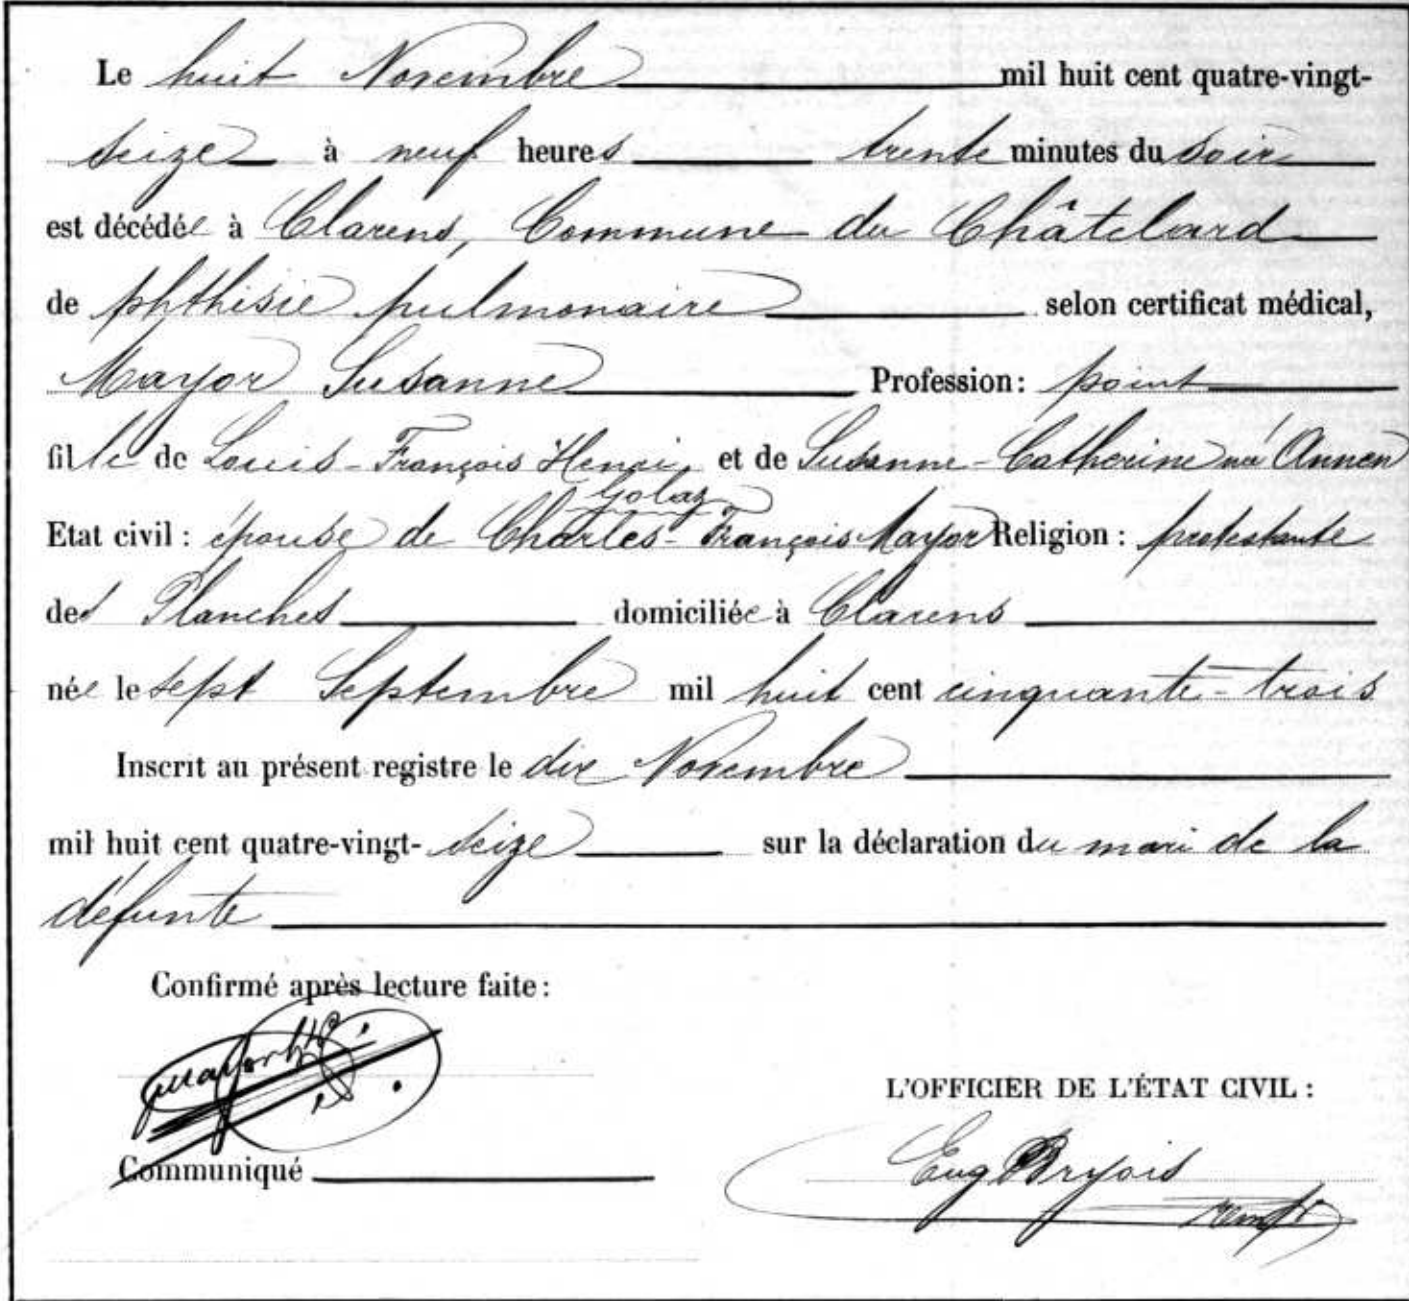 Le huit Novembre mil huit cent quatre-vingt-
seize à neuf heures trente minutes du soir
est décédée à Clarens, Commune du Châtelard
de phthisie pulmonaire selon certificat médical,
Mayor Susanne Profession: point
fille de Louis-François Henri, et de Susanne-Catherine née Annen
Golaz
Etat civil: épouse de Charles-François Mayor Religion: protestante
des Planches domiciliée à Clarens
née le sept Septembre mil huit cent cinquante-trois
Inscrit au présent registre le dix Novembre
mil huit cent quatre-vingt-seize sur la déclaration du mari de la
défunte
Confirmé après lecture faite:
L'OFFICIER DE L'ÉTAT CIVIL:
Communiqué
Eug Bryois